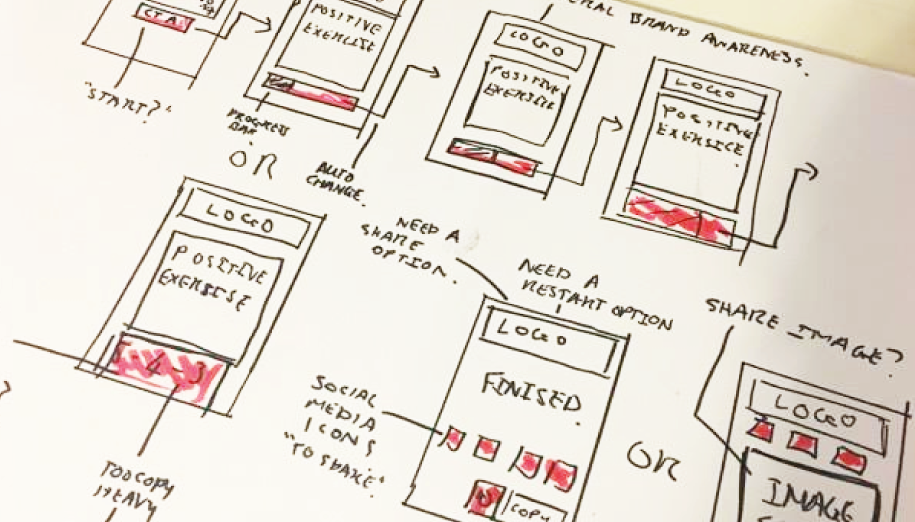 CTA
"START?"
POSITIVE
EXERCISE
PROGRESS
BAR
AUTO
CHANGE.
BRAND AWARENESS.
LOGO
POSITIVE
EXERCISE
LOGO
POSITIVE
EXERCISE
OR
LOGO
POSITIVE
EXERCISE
TOO COPY
HEAVY
NEED A
SHARE
OPTION.
NEED A
RESTART OPTION
LOGO
FINISED.
SOCIAL
MEDIA
ICONS
"TO SHARE."
COPY
OR
SHARE IMAGE?
LOGO
IMAGE